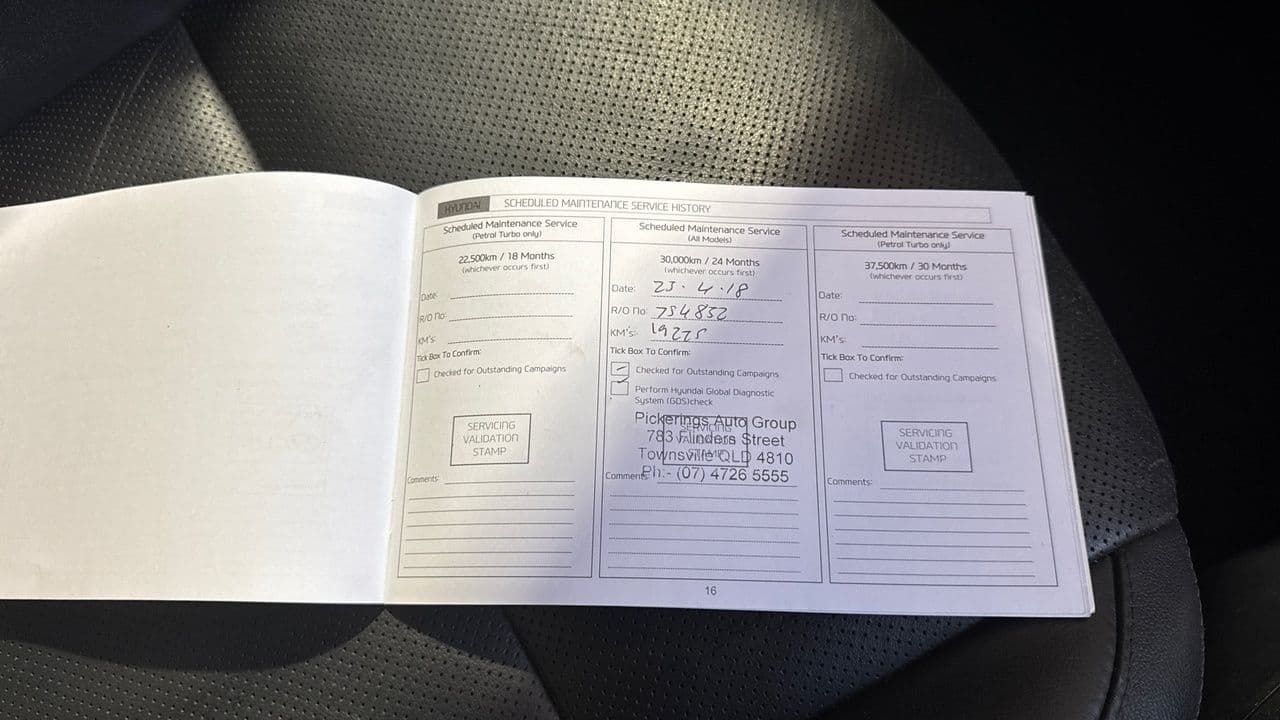 HYUNDAI SCHEDULED MAINTENANCE SERVICE HISTORY
Scheduled Maintenance Service
(Petrol Turbo only)
22,500km / 18 Months
(whichever occurs first)
Date:
R/O No:
KM's:
Tick Box To Confirm:
Checked for Outstanding Campaigns
SERVICING
VALIDATION
STAMP
Comments:
Scheduled Maintenance Service
(All Models)
30,000km / 24 Months
(whichever occurs first)
Date: 23.4.18
R/O No: 754832
KM's: 19275
Tick Box To Confirm:
Checked for Outstanding Campaigns
Perform Hyundai Global Diagnostic
System (GDS)check
Pickerings Auto Group
783 Flinders Street
Townsville QLD 4810
Ph:- (07) 4726 5555
SERVICING
VALIDATION
STAMP
Comments:
Scheduled Maintenance Service
(Petrol Turbo only)
37,500km / 30 Months
(whichever occurs first)
Date:
R/O No:
KM's:
Tick Box To Confirm:
Checked for Outstanding Campaigns
SERVICING
VALIDATION
STAMP
Comments:
16